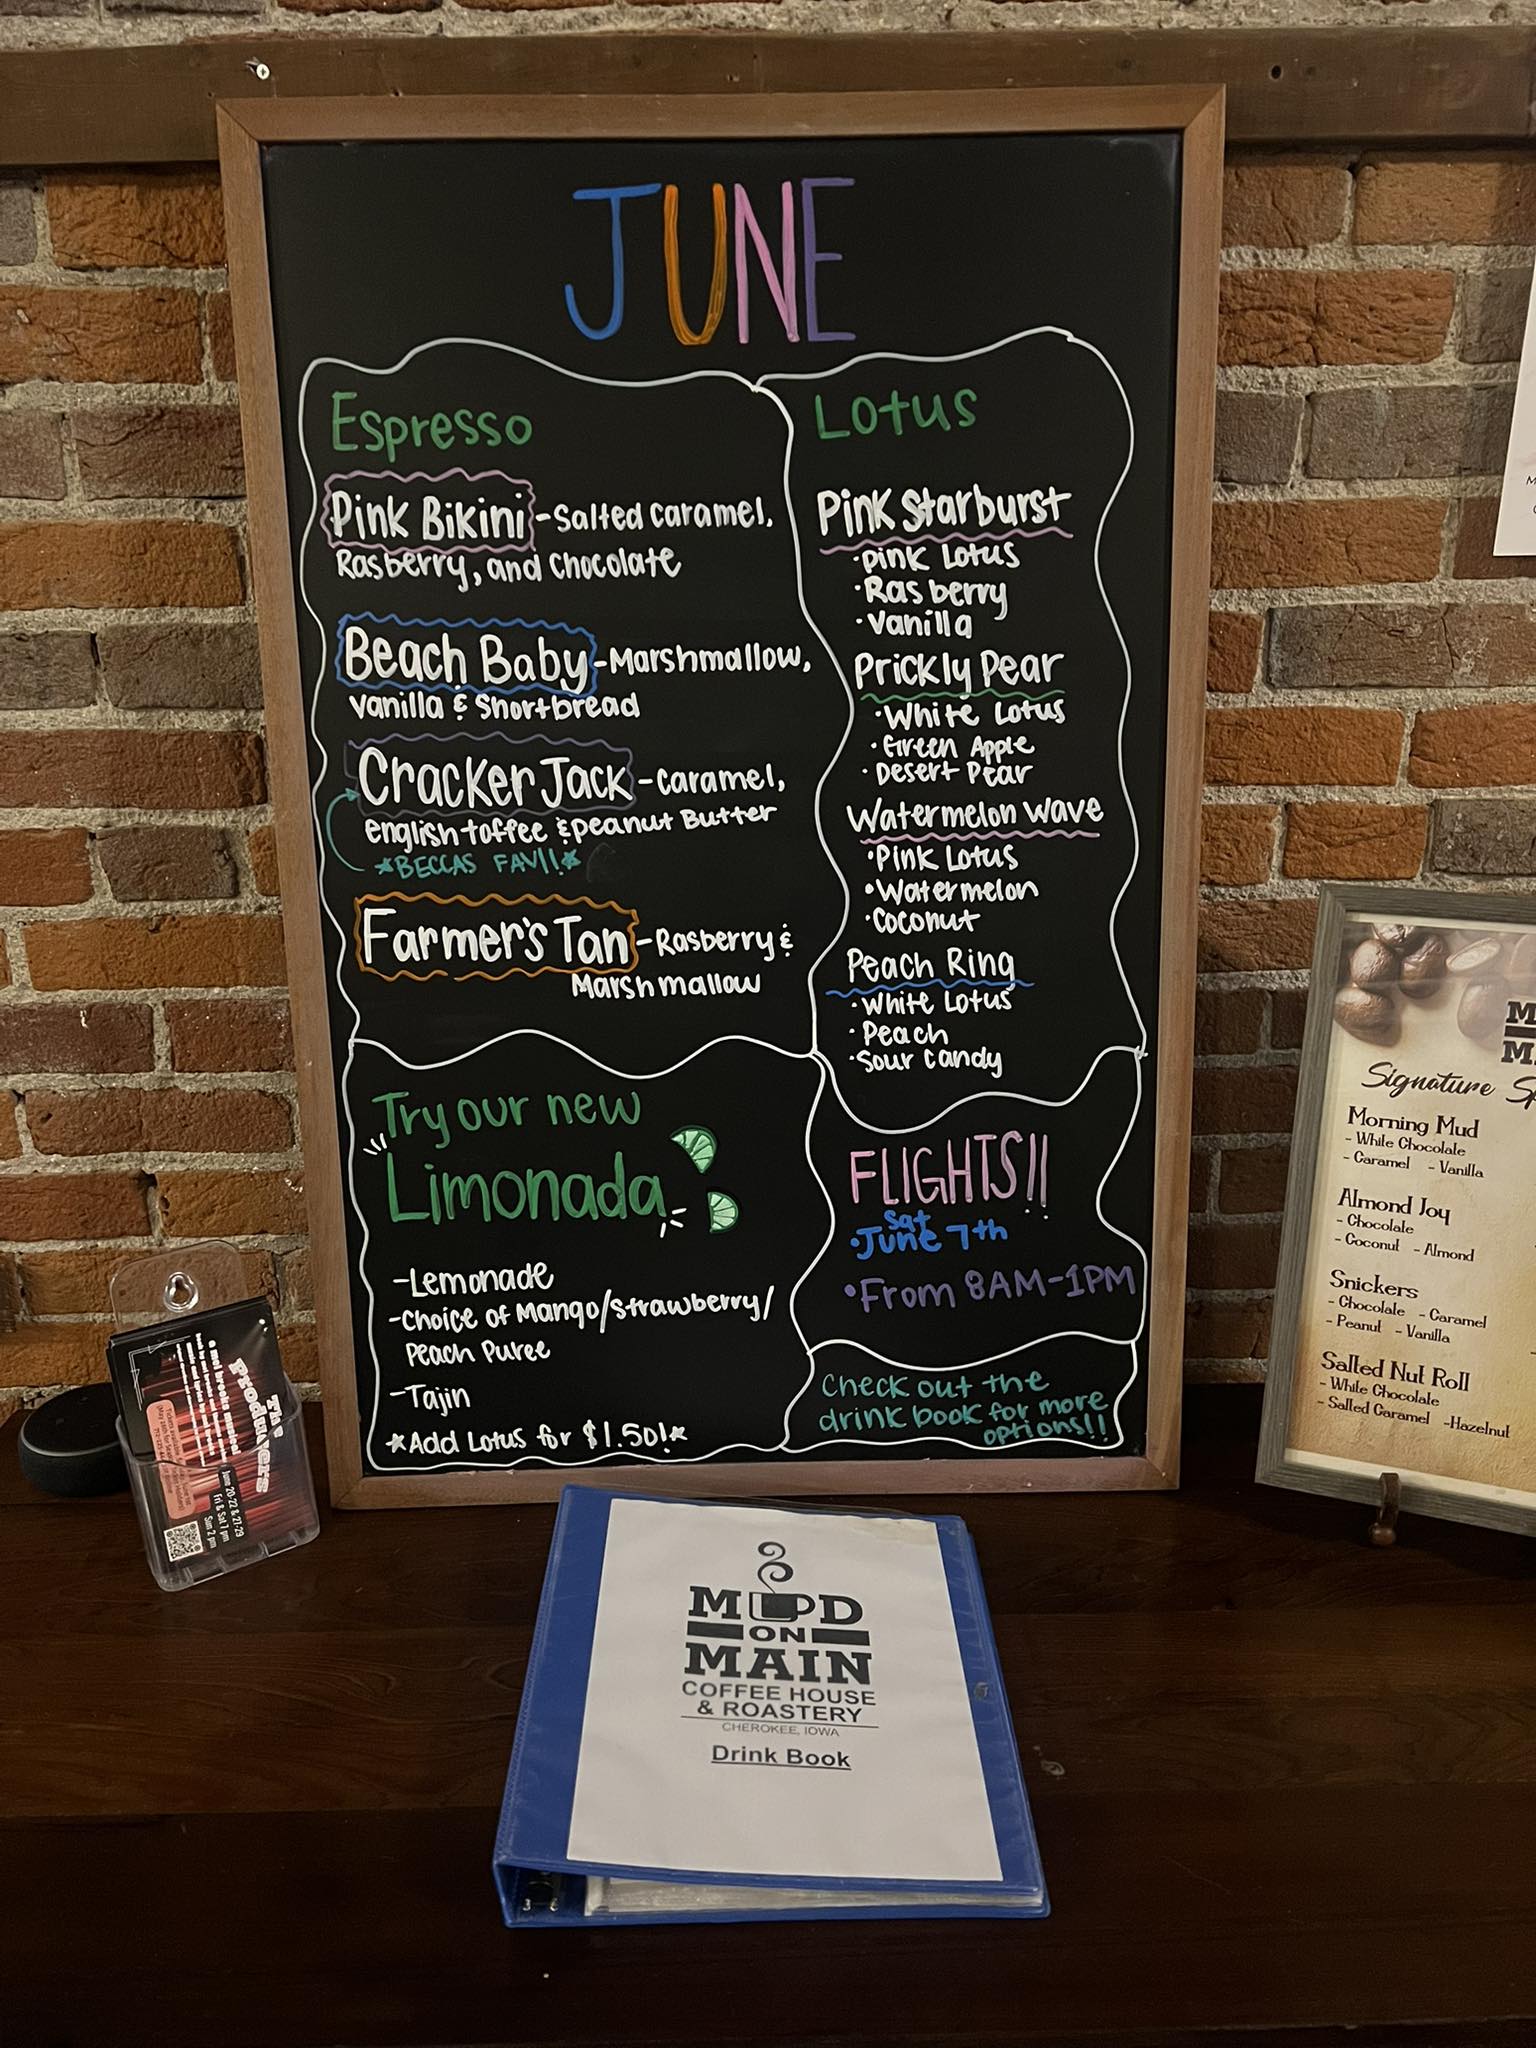 JUNE
Espresso
Pink Bikini - Salted Caramel,
Rasberry, and Chocolate
Beach Baby - Marshmallow,
Vanilla & Shortbread
Cracker Jack - Caramel,
english toffee & peanut Butter
*BECCAS FAV!!*
Farmer's Tan - Rasberry &
Marshmallow
Lotus
Pink Starburst
• Pink Lotus
• Rasberry
• Vanilla
Prickly Pear
• White Lotus
• Green Apple
• Desert Pear
Watermelon Wave
• Pink Lotus
• Watermelon
• Coconut
Peach Ring
• White Lotus
• Peach
• Sour Candy
Try our new
Limonada
- Lemonade
- Choice of Mango/Strawberry/
Peach Puree
- Tajin
*Add Lotus for $1.50!*
FLIGHTS!!
• Sat June 7th
• From 8AM-1PM
Check out the
drink book for more
options!!
Signature
Morning Mud
- White Chocolate
- Caramel - Vanilla
Almond Joy
- Chocolate
- Coconut - Almond
Snickers
- Chocolate - Caramel
- Peanut - Vanilla
Salted Nut Roll
- White Chocolate
- Salted Caramel -Hazelnut
The
Producers
a mel brooks musical
June 20-22 & 27-29
Fri & Sat 7 pm
Sun 2 pm
MUD
ON
MAIN
COFFEE HOUSE
& ROASTERY
CHEROKEE, IOWA
Drink Book